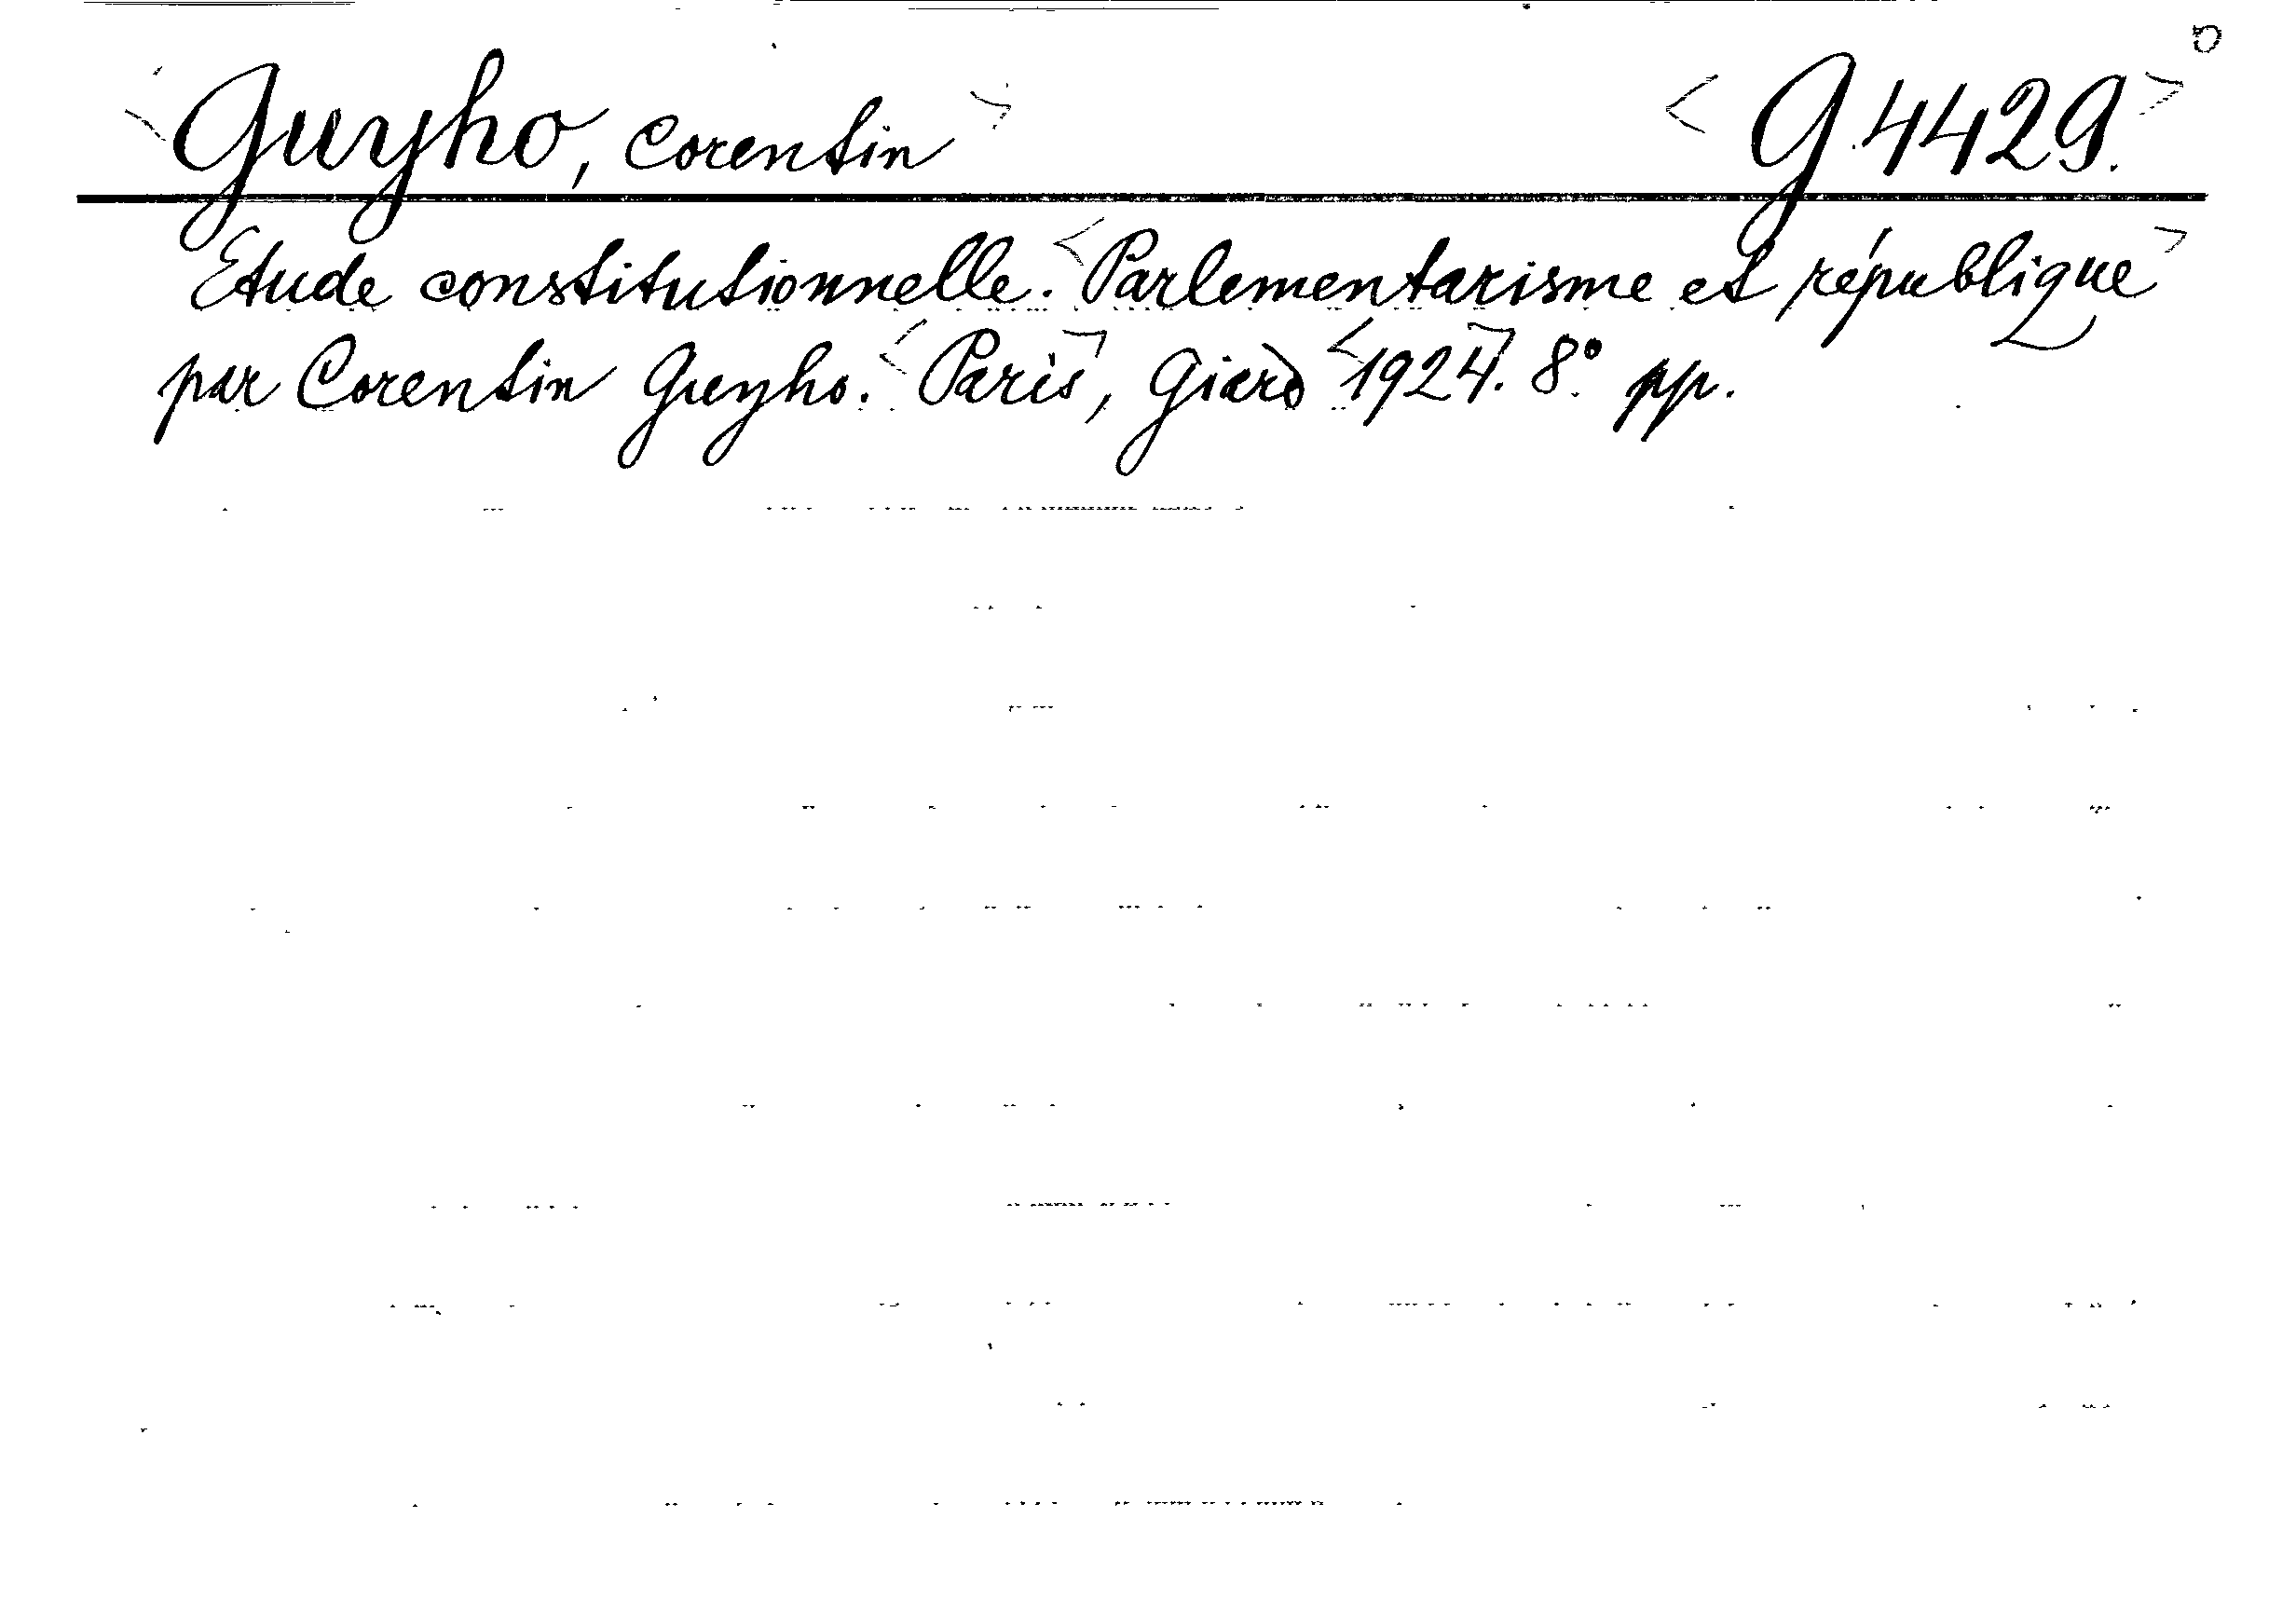 <Guyho, Corentin> <G.4429.>
Etude constitutionnelle. <Parlementarisme et république>
par Corentin Guyho. <Paris>, Giard <1924>. 8° pp.